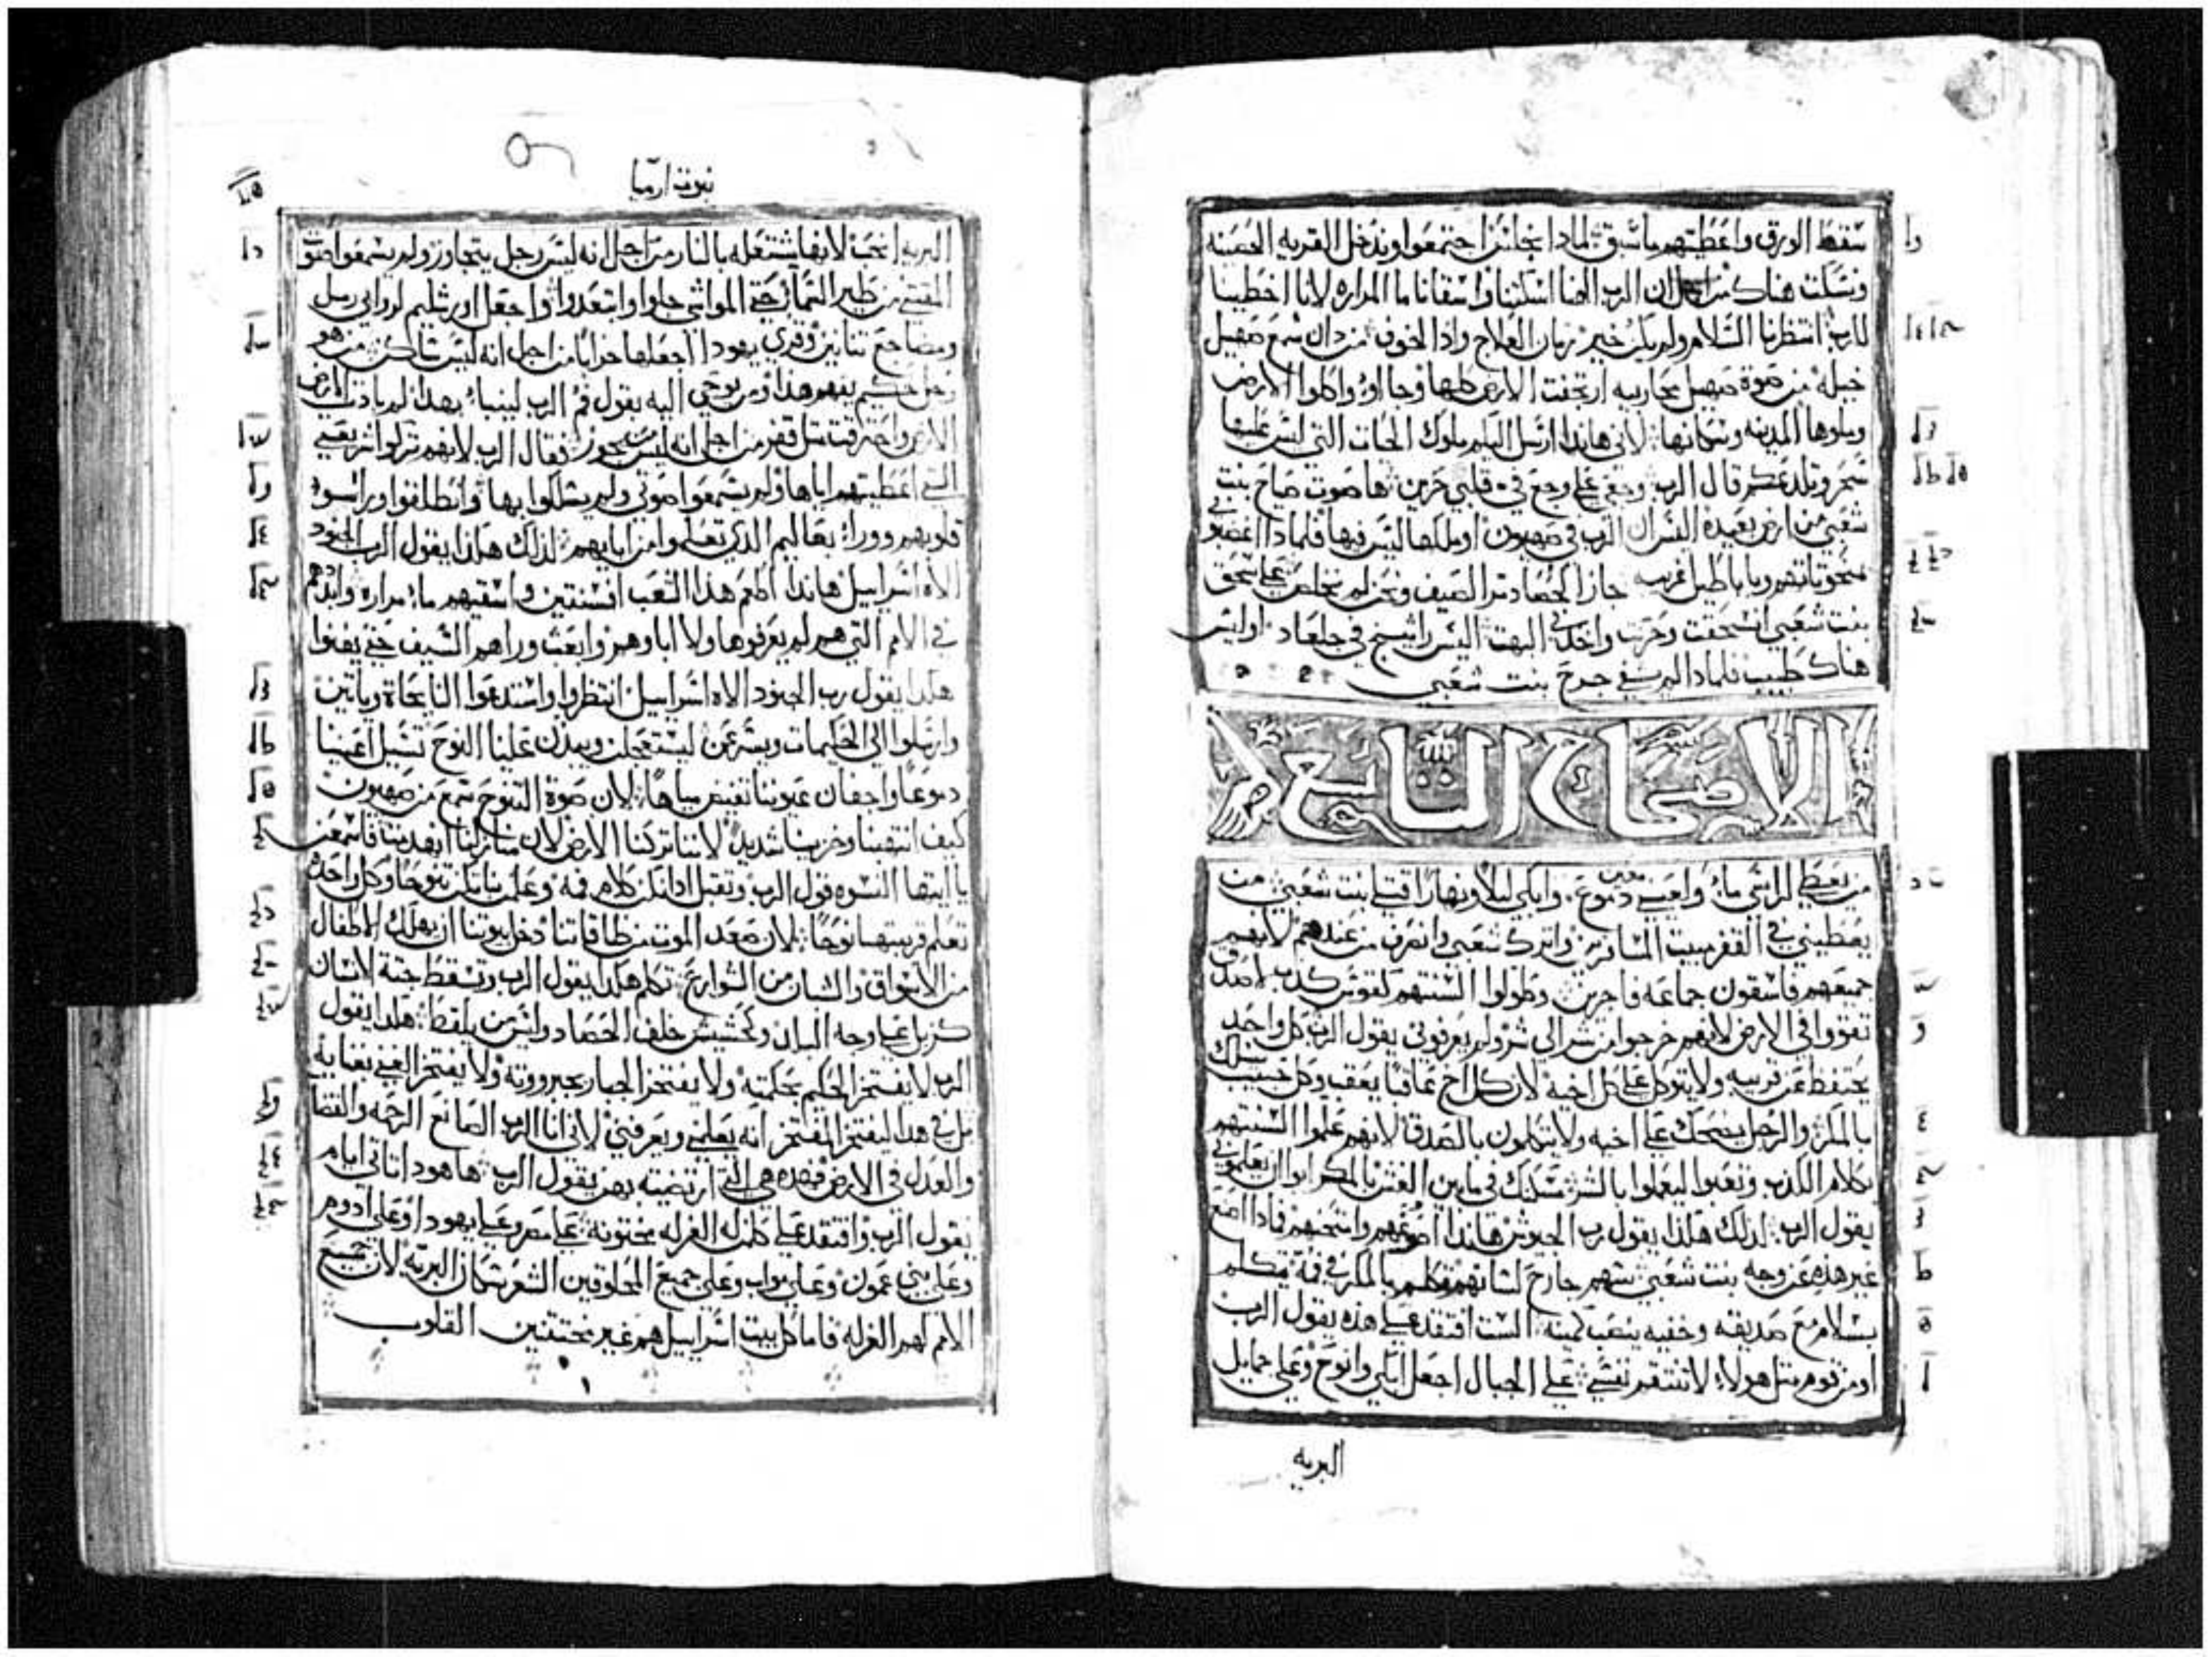 سقط الورق واعطيتهم ما سبق لمادا نجلس اجتمعوا وندخل القريه الحصينه
ونسكت هناك من اجل ان الرب الهنا اسكتنا واسقانا ما المراره لاننا اخطينا
للرب انتظرنا السلام ولم يكن خير زمان العلاج واذا الخوف من دان سمع صهيل
خيله من صوة صهيل محاربيه ارتجفت الارض كلها وجاوا واكلوا الارض
وملوها المدينه وسكانها لاني هاندا ارسل اليكم ملوك الحيات التي ليس عليها
سحر وتلدغكم قال الرب وجعي على وجع في قلبي حزين ها صوت صياح بنت
شعبي من ارض بعيده الرب في صهيون او ملكها ليس فيها فلمادا اغضبوني
بمنحوتاتهم وباباطيل غريبه جاز الحصاد تم الصيف ونحن لم نخلص على سحق
بنت شعبي انسحقت وحزنت واخدني البهت اليس راتينج في جلعاد او ليس
هناك طبيب فلمادا لم يشفي جرح بنت شعبي
الاصحاح التاسع
من يعطي لراسي ماء ولعيني معين دموع وابكي ليلا ونهارا قتلي بنت شعبي من
يعطيني في القفر مبيت المسافرين واترك شعبي وانصرف من عندهم لانهم
جميعهم فاسقون جماعه فاجرين وطولوا السنتهم كقوس كدب لا صدق
تقووا في الارض لانهم خرجوا من شر الي شر ولم يعرفوني يقول الرب كل واحد
يحتفظ من قريبه ولا يتوكل على كل اخيه لان كل اخ عاقبا يعقب وكل حبيب يسلك
بالمكر والرجل يضحك على اخيه ولا يتكلمون بالصدق لانهم علموا السنتهم
بكلام الكذب وتعبوا ليعملوا بالشر مسكنك في ما بين الغش بالمكر ابوا ان يعلموني
يقول الرب لدلك هكذا يقول رب الجيوش هاندا اصوغهم وامتحنهم فمادا اصنع
غير هذه عن وجه بنت شعبي سهم جارح لسانهم تكلم بالمكر في فمه يتكلم
بسلام مع صديقه وخفيه ينصب كمينه الست افتقد على هذه يقول الرب
او من قوم متل هولاء لا تنتقم نفسي على الجبال اجعل ابكي وانوح وعلى جمايل
البريه
نبوة ارميا
البريه نحبه لانها مشتعله بالنار من اجل انه ليس رجل يتجاوز ولم يسمعوا صوت
المقتني من طير السماء حتي المواشي جلوا وابتعدوا واجعل اورشليم لروابي رمل
ومضاجع تنانين وقري يهودا اجعلها خرابا من اجل انه ليس ساكن من هو
رجل حكيم يفهم هذا ومن يوحي اليه يقول فم الرب لينبا بهدا لم بادت الارض
الارض واحترقت متل قفر من اجل انه ليس من يجوز فقال الرب لانهم تركوا شريعتي
التي اعطيتهم اياها ولم يسمعوا صوتي ولم يسلكوا بها وانطلقوا ورا سو
قلوبهم وورا بعاليم الذي تعلموا من ابايهم لذلك هكذا يقول الرب الجنود
الاه اسراييل هاندا اطعم هذا الشعب افسنتين واسقيهم ماء مراره وابددهم
في الامم التي هم لم يعرفوها ولا اباوهم وابعث وراهم السيف حتي يفنوا
هكدا يقول رب الجنود الاه اسراييل انتظروا واستدعوا النايحاة وياتين
وارسلوا الي الحكيمات ويسرعن ليستعجلن ويبدن علينا النوح تسيل اعيننا
دموعا واجفان عيوننا تفيض مياها لان صوة النوح سمع من صهيون
كيف انتهبنا وخزينا شديد لاننا تركنا الارض لان منازلنا ابعدتنا فاسمعن
يا ايتها النسوه قول الرب وتقبل ادانكن كلام فمه وعلمن بناتكن تنوحا وكل واحدة
تعلم قريبتها نوحا لان صعد الموت من طاقاتنا دخل بيوتنا ان يهلك الاطفال
من الاسواق والشبان من الشوارع تكلم هكدا يقول الرب وتسقط جتة الانسان
كزبل على وجه البلدان وكحشيش خلف الحصاد وليس من يلقط هكدا يقول
الرب لا يفتخر الحكيم بحكمته ولا يفتخر الجبار بجبروته ولا يفتخر الغني بغنايه
بل في هدا ليفتخر المفتخر انه يعلمني ويعرفني لاني انا الرب الصانع الرحمه والقضا
والعدل في الارض فهذه هي التي ارتضيته بهن يقول الرب ها هودا تاتي ايام
يقول الرب وافتقد على كل من له الغرله مختونه على مصر وعلى يهودا وعلى ادوم
وعلى بني عمون وعلى مواب وعلى جميع المحلوقين الشعر سكان البريه لان جميع
الامم لهم الغرله فاما كل بيت اسراييل هم غير مختتنين القلوب